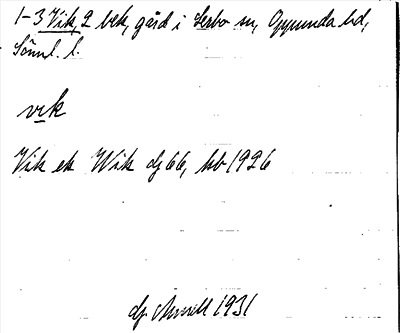 1-3 Vik, 2 bek, gård i Lerbo sn, Oppunda hd,
Söml. l.
vik
Vik ek Wik dj 66, hb 1926
dj. 1931